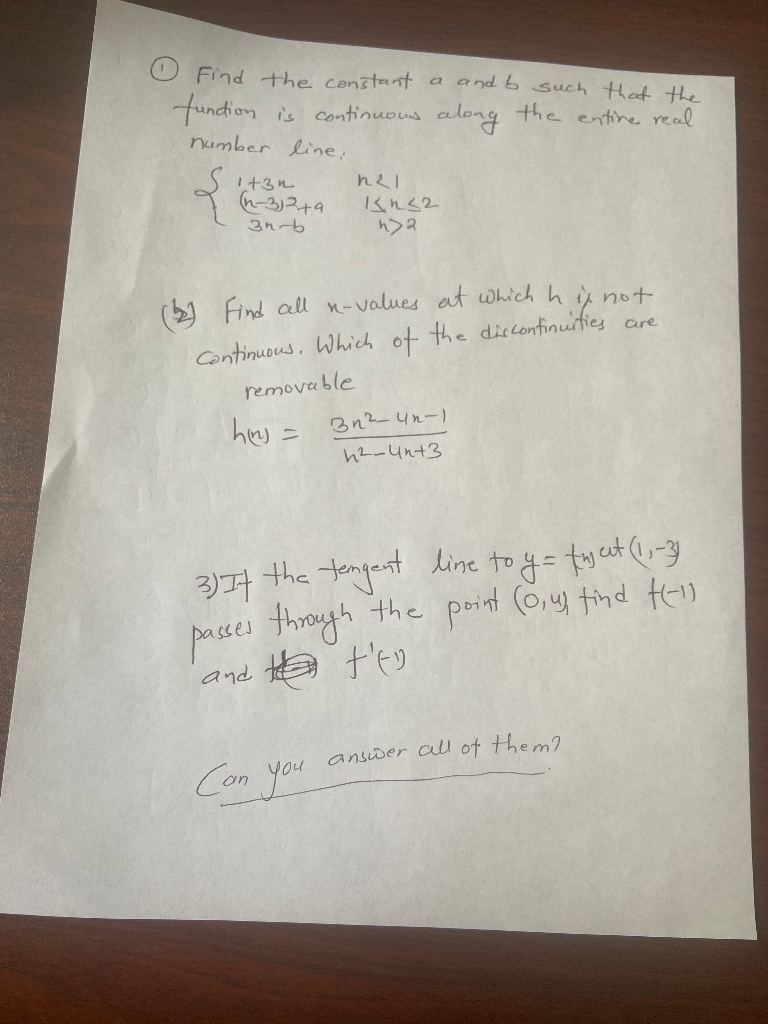 ① Find the constant a and b such that the
function is continuous along the entire real
number line.
{ 1+3n n<1
(n-3)2+a 1≤n≤2
3n-b n>2
(2) Find all n-values at which h is not
Continuous. Which of the discontinuities are
removable
h(n) = 3n²-4n-1
n²-4n+3
3) If the tengent line to y = f(n) at (1,-3)
passes through the point (0,4) find f(-1)
and f'(-1)
Can you answer all of them?